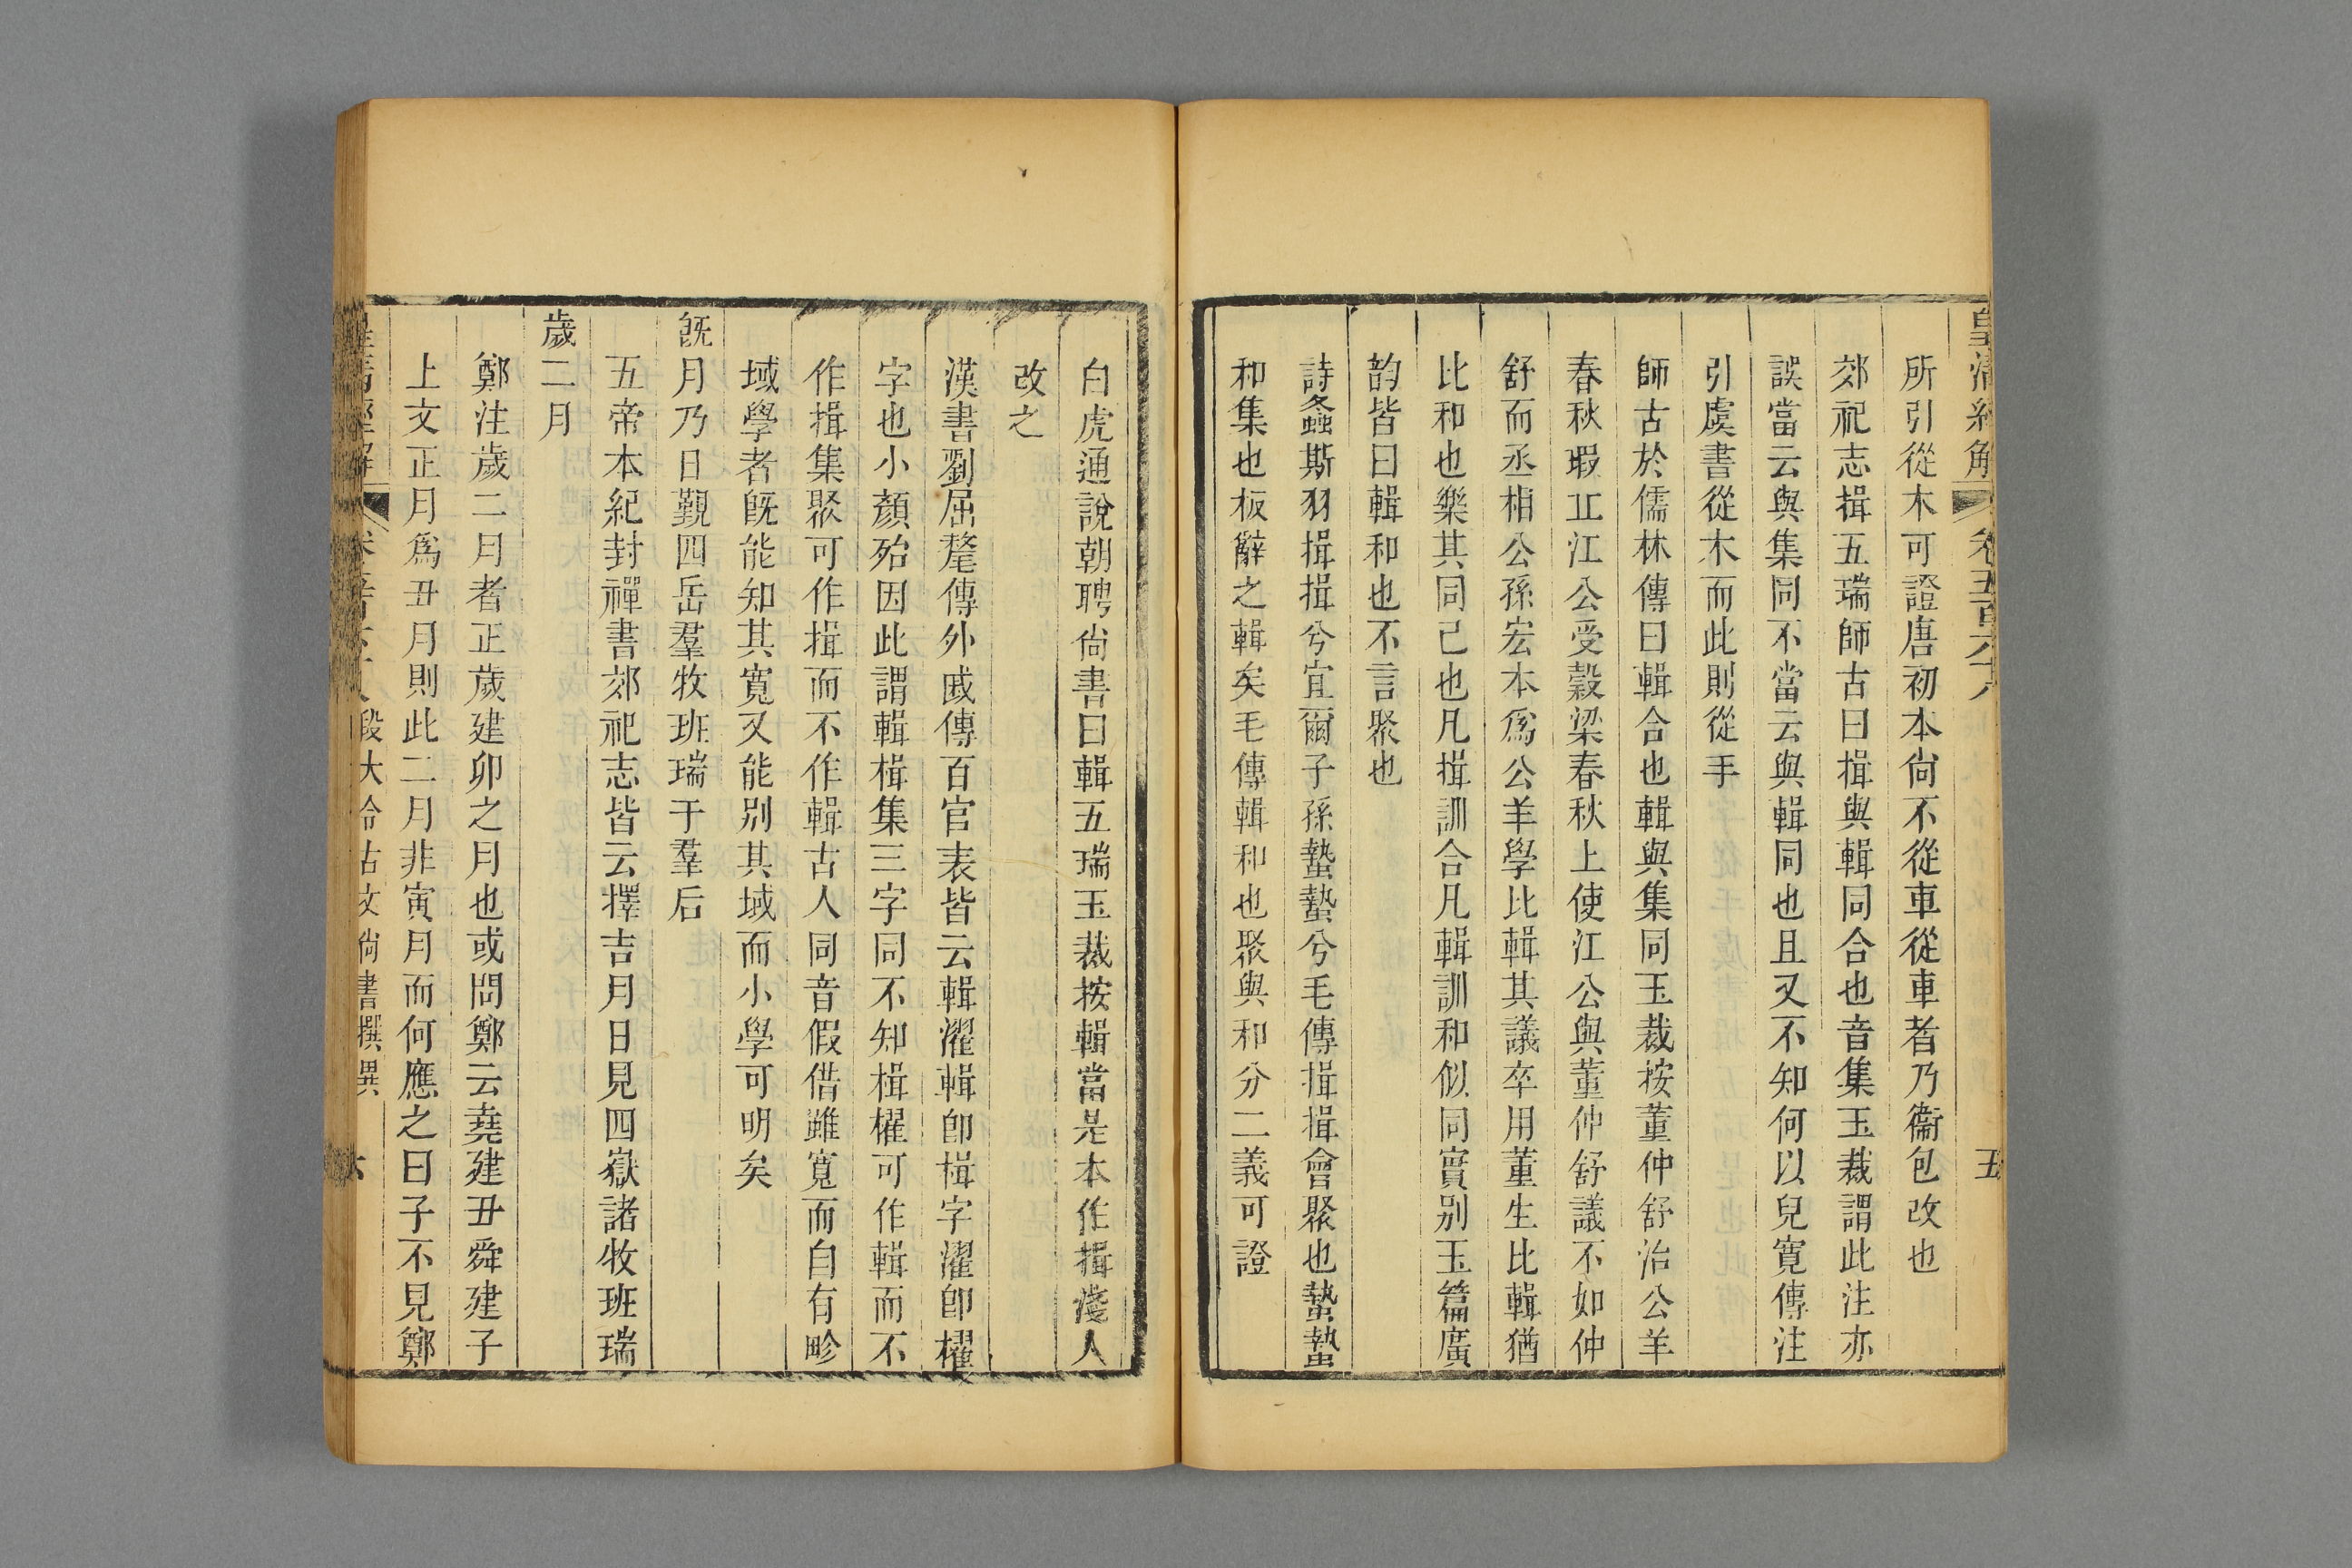 皇清經解 卷五百六十八 五
所引從木可證唐初本尙不從車從車者乃衞包改也
郊祀志揖五瑞師古曰揖與輯同合也音集玉裁謂此注亦
誤當云與集同不當云與輯同也且又不知何以兒寬傳注
引虞書從木而此則從手
師古於儒林傳曰輯合也輯與集同玉裁按董仲舒治公羊
春秋瑕丘江公受穀梁春秋上使江公與董仲舒議不如仲
舒而丞相公孫宏本爲公羊學比輯其議卒用董生比輯猶
比和也樂其同己也凡揖訓合凡輯訓和似同實別玉篇廣
韵皆曰輯和也不言聚也
詩螽斯羽揖揖兮宜爾子孫蟄蟄兮毛傳揖揖會聚也蟄蟄
和集也板辭之輯矣毛傳輯和也聚與和分二義可證
白虎通說朝聘尙書曰輯五瑞玉裁按輯當是本作揖淺人
改之
漢書劉屈氂傳外戚傳百官表皆云輯濯輯卽楫字濯卽櫂
字也小顏殆因此謂輯楫集三字同不知楫櫂可作輯而不
作揖集聚可作揖而不作輯古人同音假借雖寬而自有畛
域學者旣能知其寬又能別其域而小學可明矣
旣月乃日覲四岳羣牧班瑞于羣后
五帝本紀封禪書郊祀志皆云擇吉月日見四嶽諸牧班瑞
歲二月
鄭注歲二月者正歲建卯之月也或問鄭云堯建丑舜建子
上文正月爲丑月則此二月非寅月而何應之曰子不見鄭
皇清經解 段大令古文尙書撰異 六